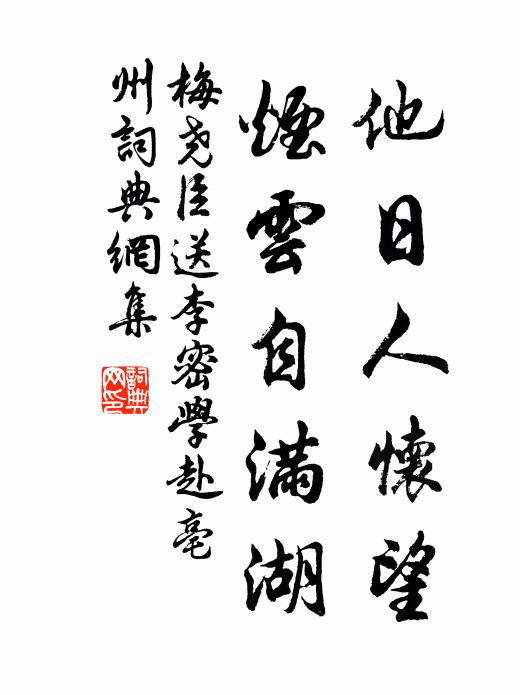 他日人懷望
煙雲自滿湖
梅堯臣送李密學赴亳
州詞典網集
詞典
网印